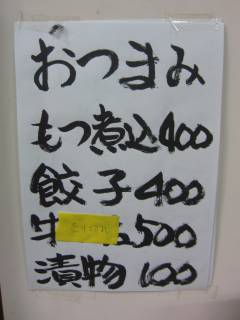 おつまみ
もつ煮込400
餃子400
牛 500
漬物100